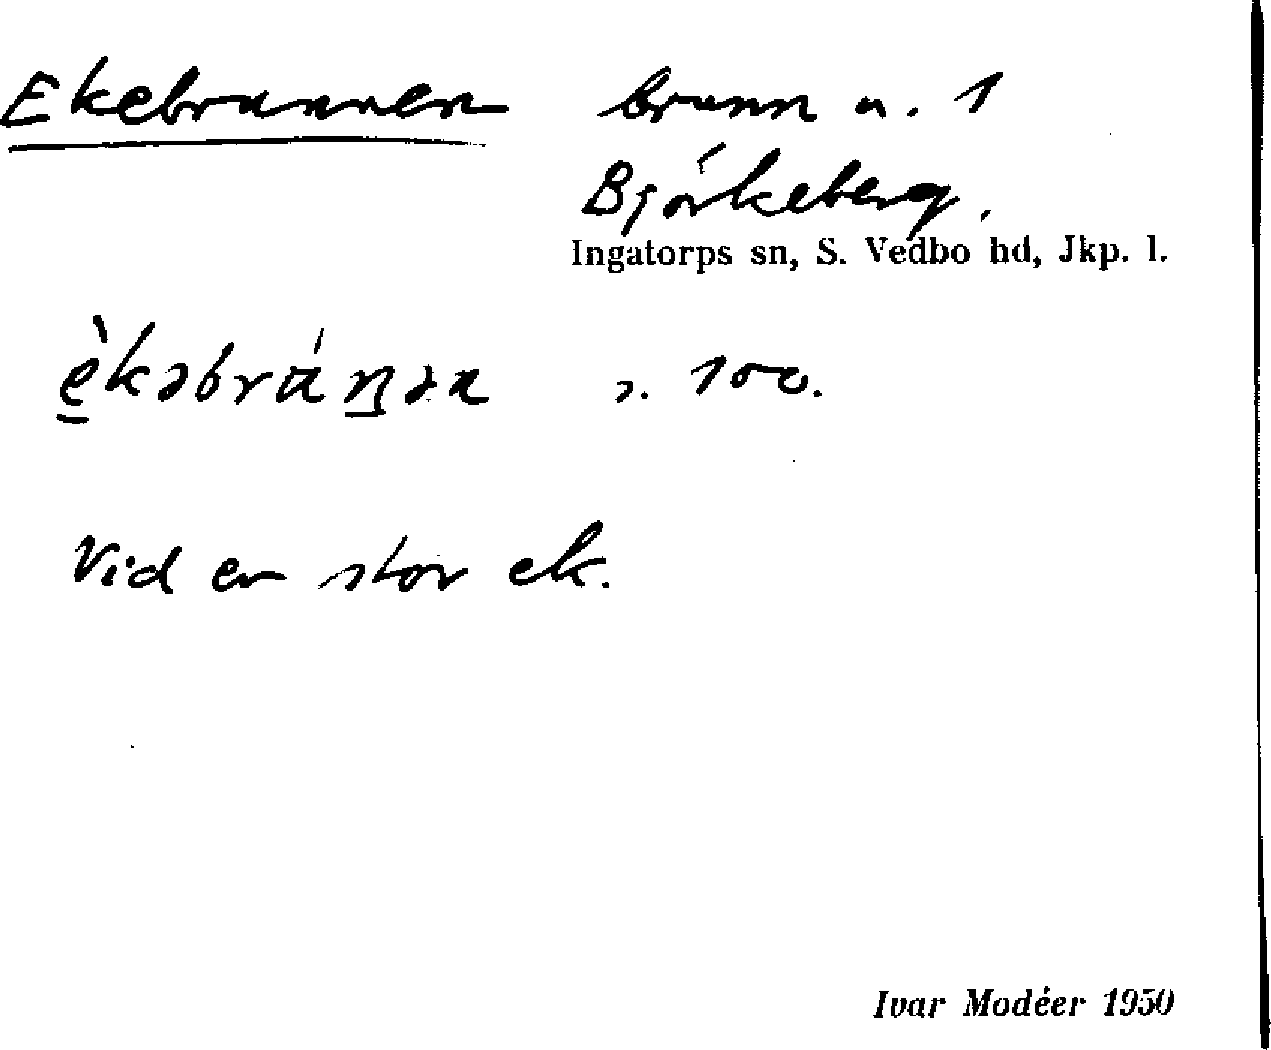 Ekebrunnen brunn u. 1
Björkeberg.
Ingatorps sn, S. Vedbo hd, Jkp. l.
s. 100.
Vid en stor ek.
Ivar Modéer 1950